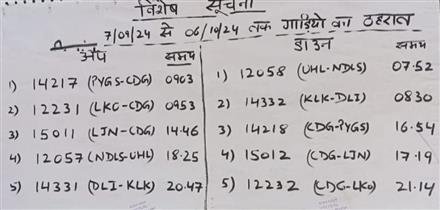 विशेष सूचना
7/09/24 से 06/10/24 तक गाडियो का ठहराव
अप समय
1) 14217 (PYGS-CDG) 0903
2) 12231 (LKO-CDG) 0953
3) 15011 (LJN-CDG) 14.46
4) 12057 (NDLS-UHL) 18.25
5) 14331 (DLI-KLK) 20.47
डाउन समय
1) 12058 (UHL-NDLS) 07.52
2) 14332 (KLK-DLI) 0830
3) 14218 (CDG-PYGS) 16.54
4) 15012 (CDG-LJN) 17.19
5) 12232 (CDG-LKO) 21.14